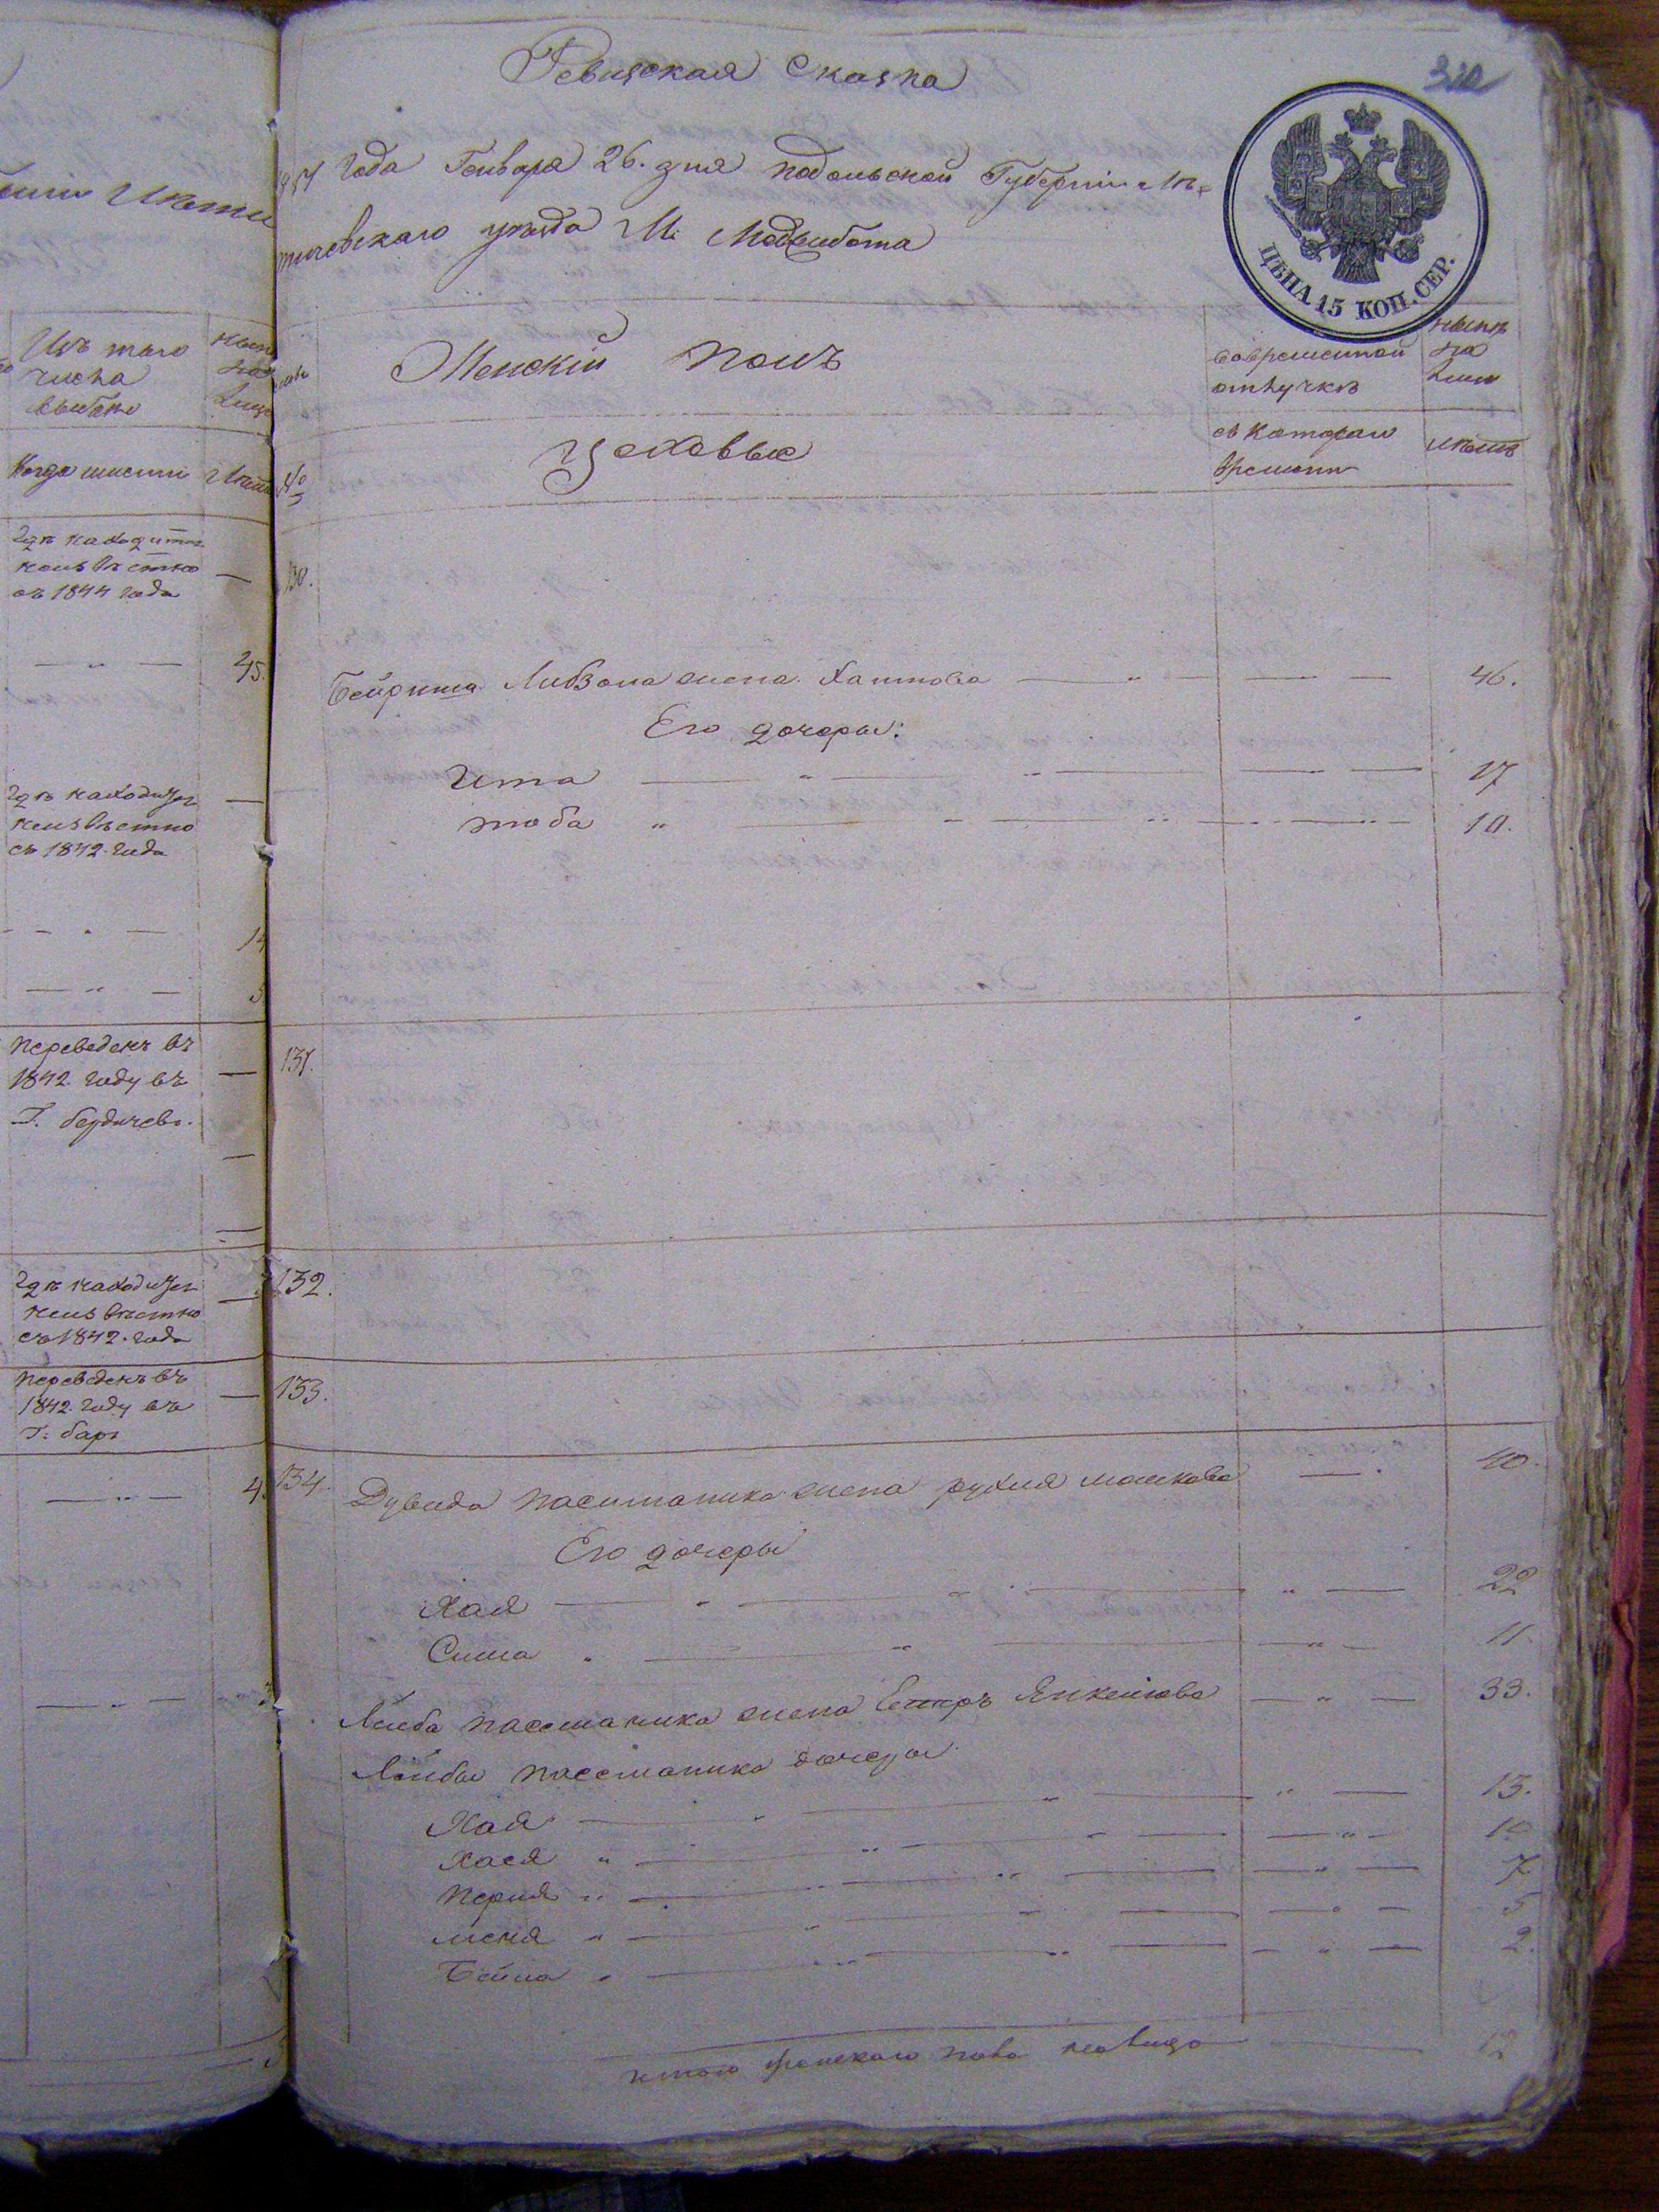 Изъ того
числа
выбыло
Когда именно
Где находится
неизвестно
съ 1844 года
45.
Где находится
неизвестно
съ 1842. года
Переведенъ въ
1842. году въ
Г. бердичевъ.
Где находится
неизвестно
съ 1842. года
Переведенъ въ
1842. году въ
Г. баръ
Ревизская Сказка
года Генваря 26. дня Подольской Губерніи Ле=
тичевскаго уезда М. Меджибожа
ЦѢНА 15 КОП. СЕР.
Женскій полъ
во временной
отлучке
ныне
на
лицо
Цеховые
№
съ котораго
времени
летъ
130.
Бейриша Либзона жена Хаимова 46.
Его дочеры:
Ита 17
тоба 10.
131.
132.
133.
134. Дувида пасиманика жена рухля мошкова 40.
Его дочеры
Хая 22
Сима 11.
Лейба пассманика жена Естръ Янкелева 33.
Лейбы пассманика дочеры
Хая 13.
Хася 10
Перля 7
5
Бейла 2.
итого женскаго пола на лицо 12